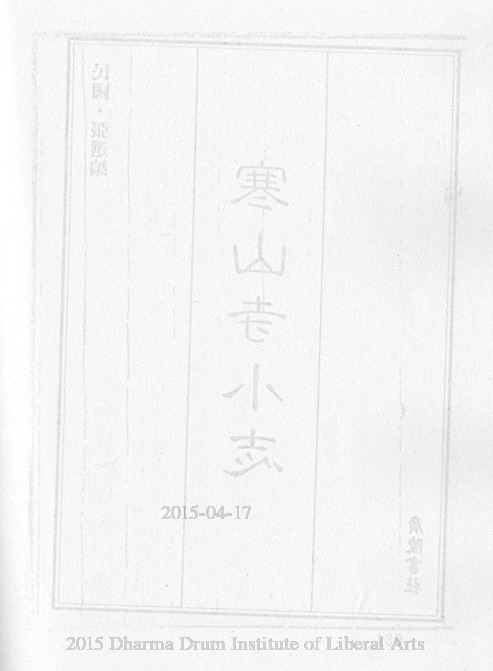 民國・張選編
寒山寺小志
廣陵書社
2015-04-17
2015 Dharma Drum Institute of Liberal Arts